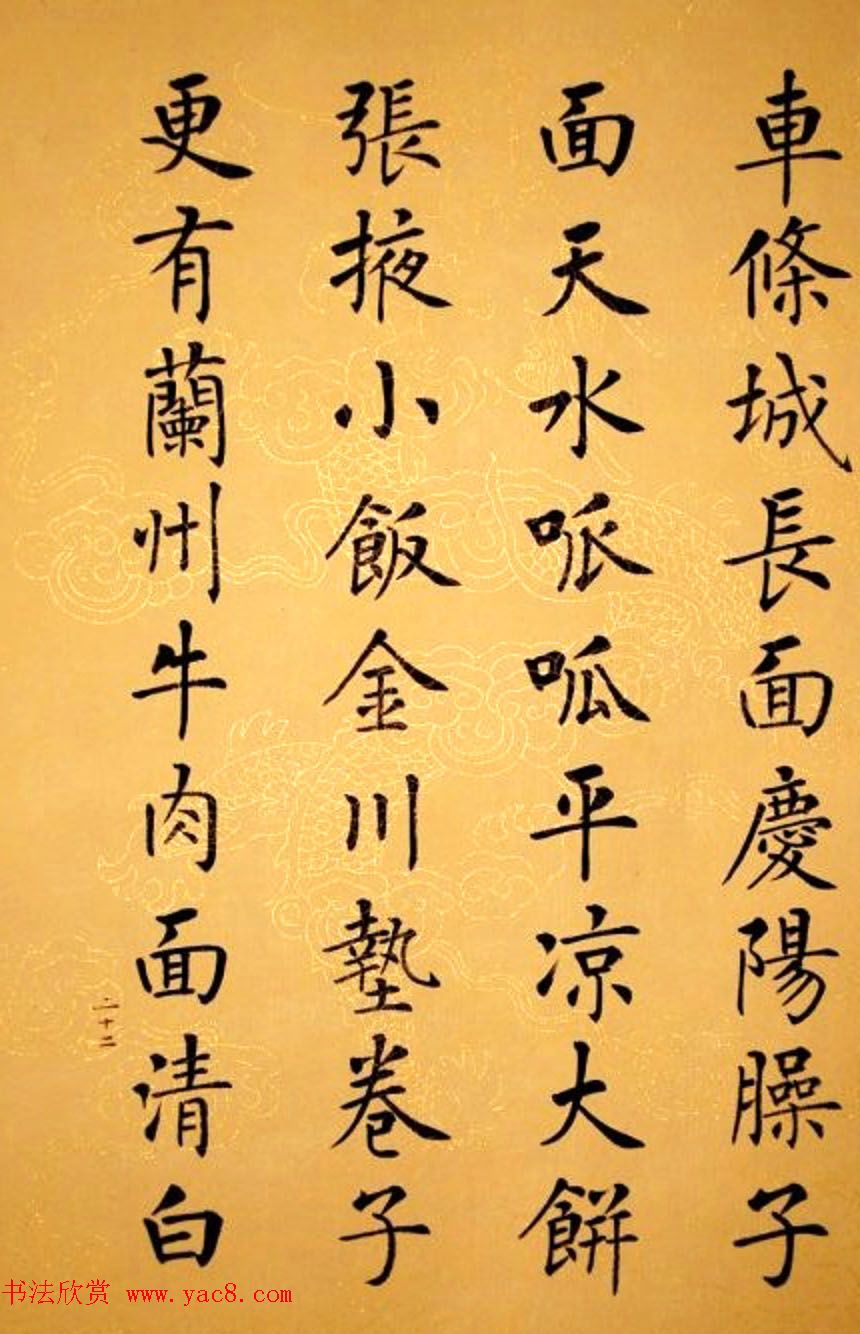 車條城長面慶陽臊子
面天水呱呱平凉大餅
張掖小飯金川墊卷子
更有蘭州牛肉面清白
二十二
书法欣赏 www.yac8.com